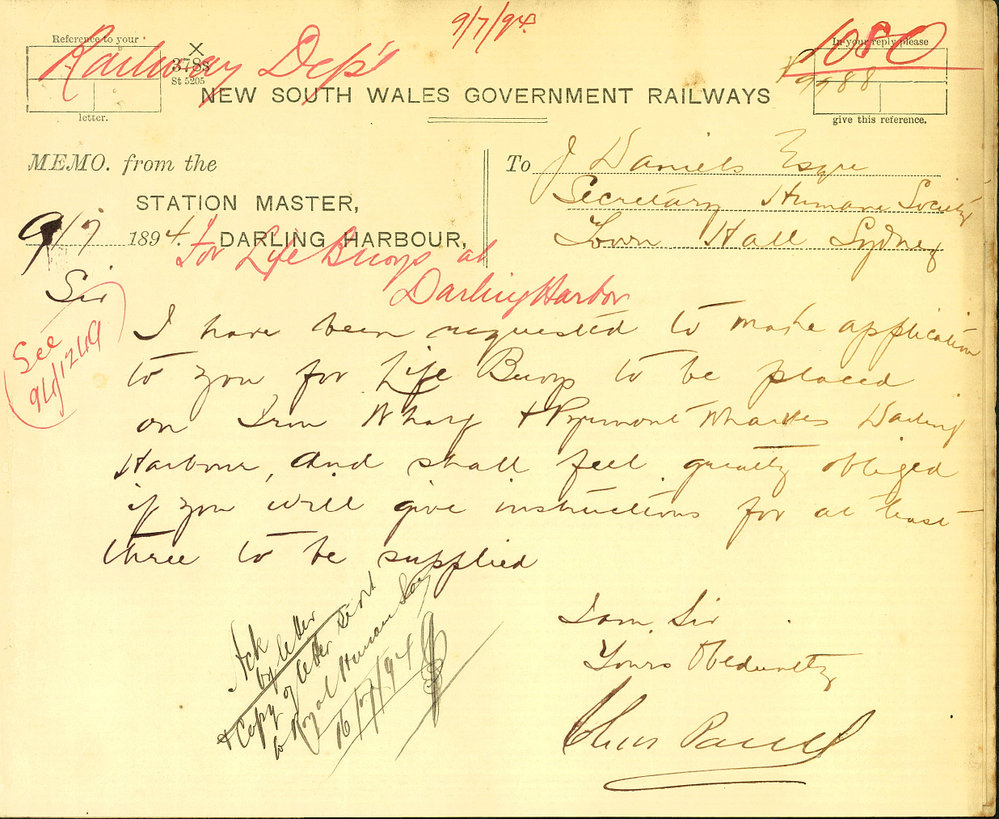 9/7/94
Reference to your
Railway Dep't
X
378s
St 5205
letter.
In your reply please
1080
9988
give this reference.
NEW SOUTH WALES GOVERNMENT RAILWAYS
MEMO. from the
STATION MASTER,
9/7 1894. DARLING HARBOUR,
To J Daniels Esqre
Secretary Humane Society
Town Hall Sydney
For Life Buoys at
Darling Harbor
See
94/1249
Sir
I have been requested to make application
to you for Life Buoys to be placed
on Iron Wharf & Pyrmont Wharves Darling
Harbour, and shall feel greatly obliged
if you will give instructions for at least
three to be supplied
I am, Sir
Yours Obediently
Chas
Ack
by letter
& Copy of letter
to Royal Humane Soc
16/7/94